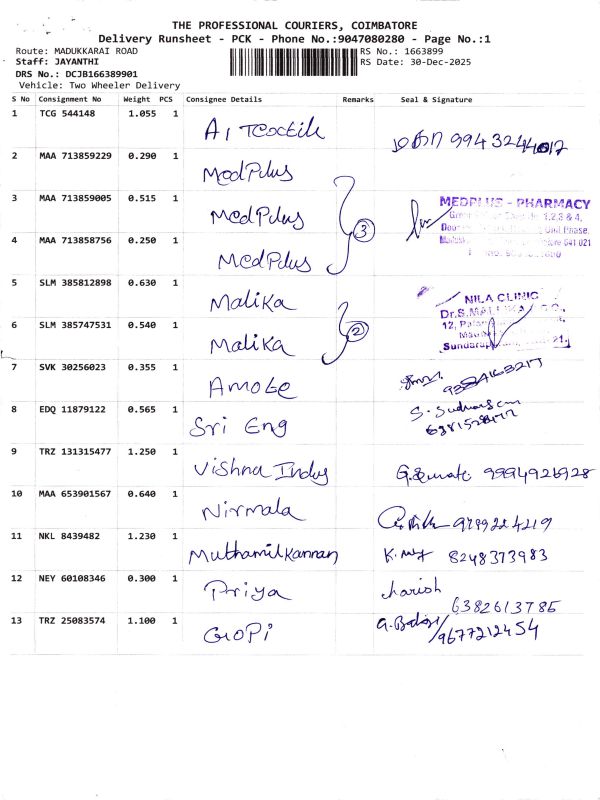 THE PROFESSIONAL COURIERS, COIMBATORE
Delivery Runsheet - PCK - Phone No.:9047080280 - Page No.:1
Route: MADUKKARAI ROAD RS No.: 1663899
Staff: JAYANTHI RS Date: 30-Dec-2025
DRS No.: DCJB166389901
Vehicle: Two Wheeler Delivery
S No Consignment No Weight PCS Consignee Details Remarks Seal & Signature
1 TCG 544148 1.055 1 A1 Textile 9943244017
2 MAA 713859229 0.290 1 MedPlus
3 MAA 713859005 0.515 1 MedPlus 3 MEDPLUS - PHARMACY
4 MAA 713858756 0.250 1 MedPlus
5 SLM 385812898 0.630 1 Malika NILA CLINIC
6 SLM 385747531 0.540 1 Malika 2
7 SVK 30256023 0.355 1 Amote
8 EDQ 11879122 0.565 1 Sri Eng
9 TRZ 131315477 1.250 1 Vishna Indus 9994926928
10 MAA 653901567 0.640 1 Nirmala
11 NKL 8439482 1.230 1 Muthamilkannan 8248373983
12 NEY 60108346 0.300 1 Priya harish 6382613785
13 TRZ 25083574 1.100 1 GOPi G. Balaji/9677212454